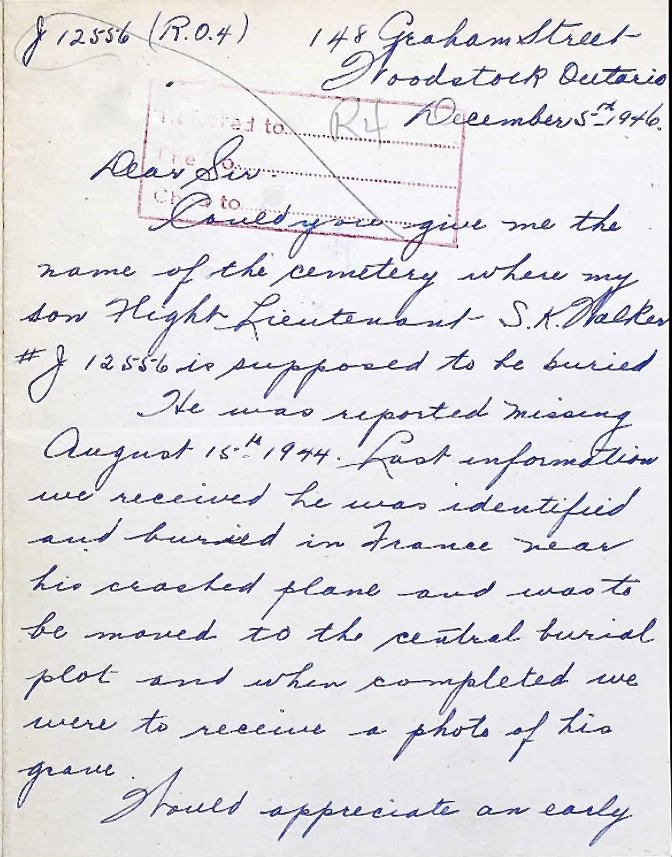 J 12556 (R.O.4)
148 Graham Street
Woodstock Ontario
December 5th 1946.
red to
R4
Dear Sir.
to
Could you give me the
name of the cemetery where my
son Flight Lieutenant S.K. Walker
# J 12556 is supposed to be buried
He was reported missing
August 15th 1944. Last information
we received he was identified
and buried in France near
his crashed plane and was to
be moved to the central burial
plot and when completed we
were to receive a photo of his
grave.
Would appreciate an early